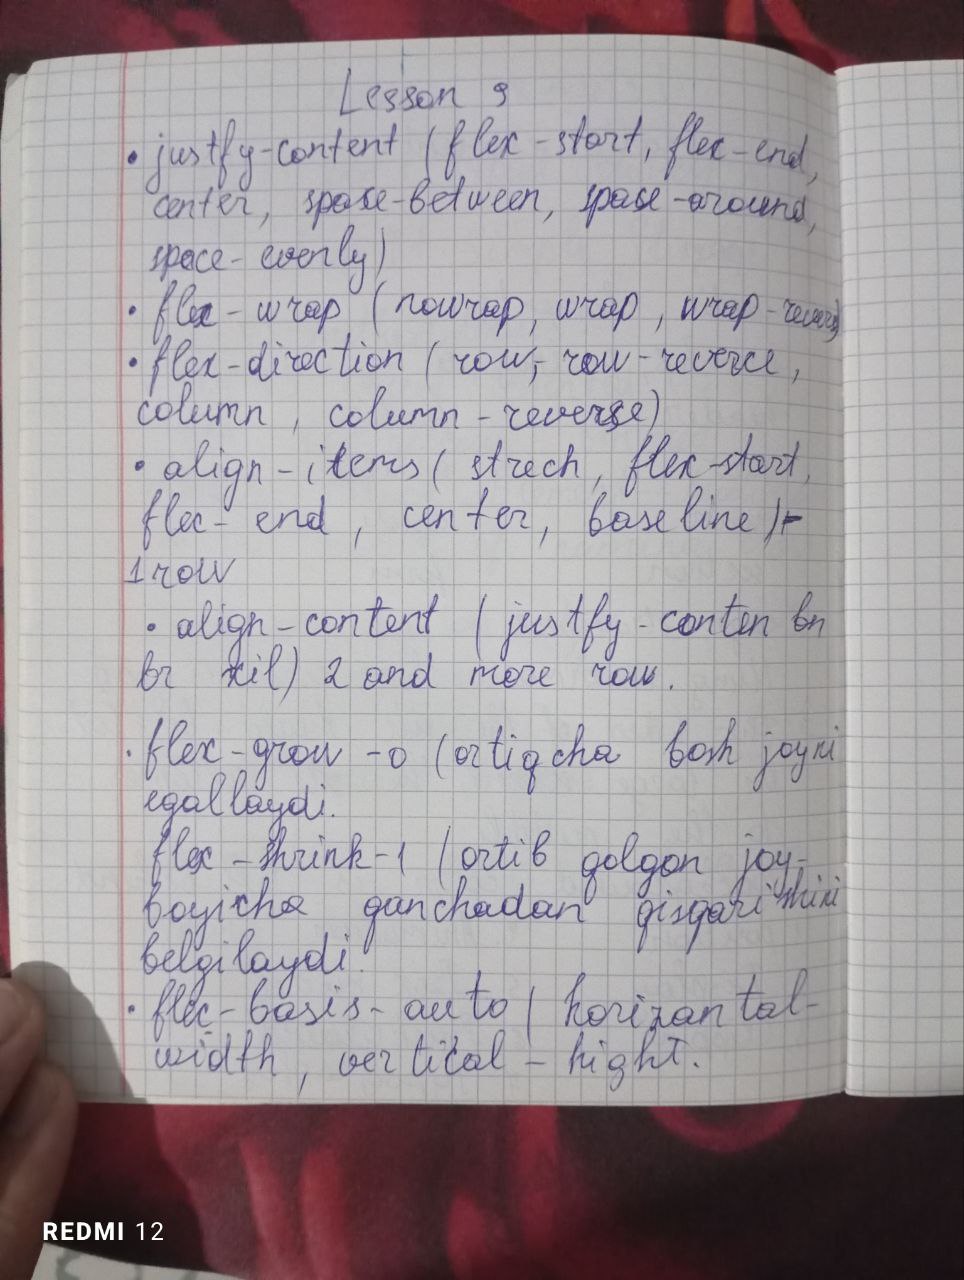 Lesson 9
• justfy-content (flex-start, flex-end,
center, spase-between, spase-around,
space-evenly)
• flex-wrap (nowrap, wrap, wrap-reverse)
• flex-direction (row, row-reverse,
column, column-reverse)
• align-items (strech, flex-start,
flex-end, center, baseline)-
1 row
• align-content (justfy-conten bn
br xil) 2 and more row.
• flex-grow -0 (ortiqcha bosh joyni
egallaydi.
flex-shrink-1 (ortib qolgan joy-
boyicha qanchadan qisqarishini
belgilaydi.
• flex-basis-auto (horizantal-
width, vertical-hight.
REDMI 12